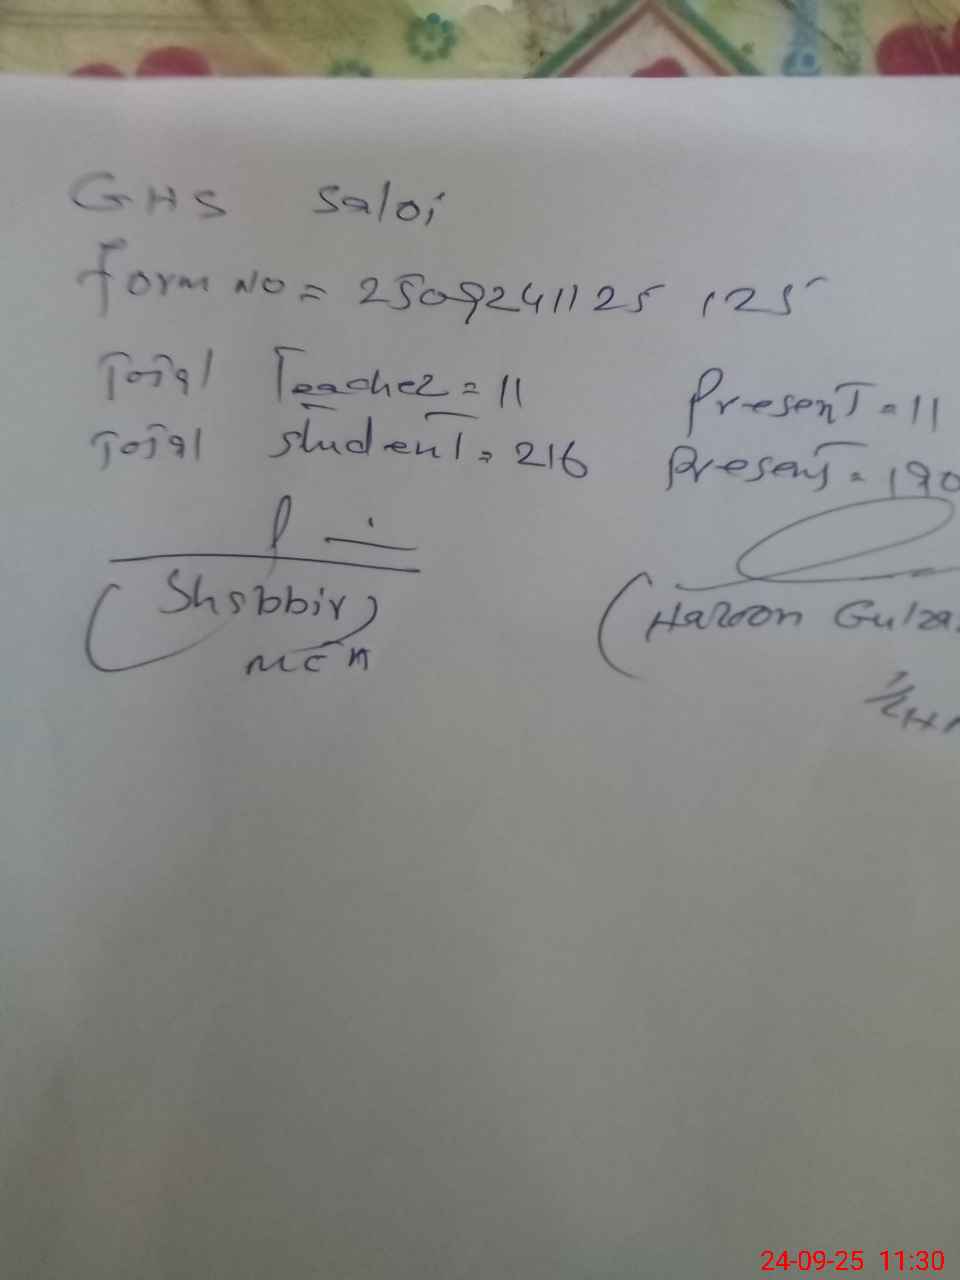 GHS Saloi
Form No = 2509241125 125
Total Teacher = 11 Present = 11
Total student = 216 Present = 190
(Shabbir) (Haroon Gulza
MEA
24-09-25 11:30